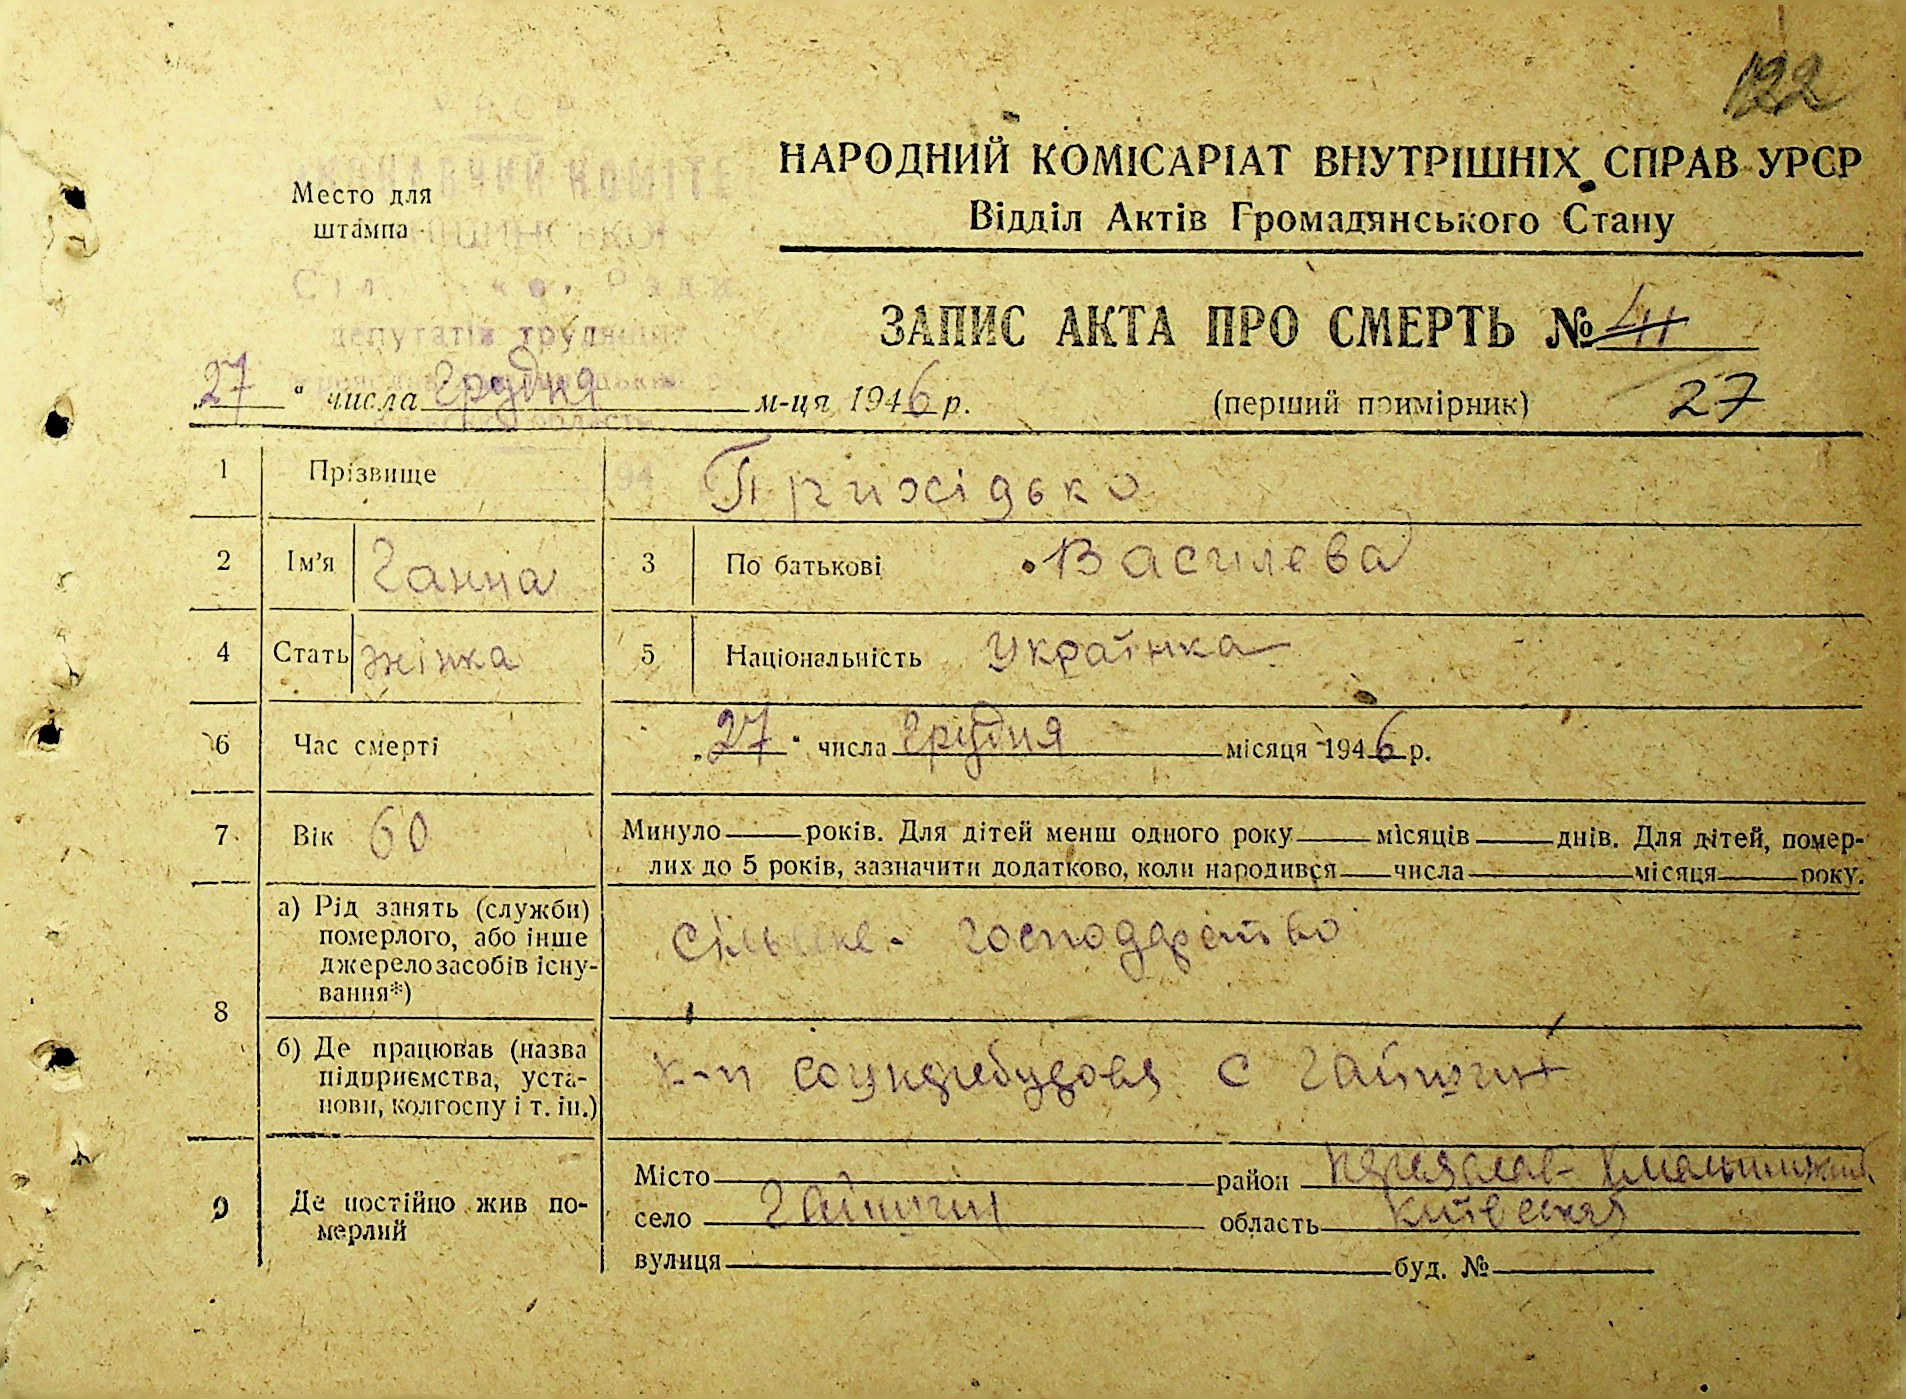 122
НАРОДНИЙ КОМІСАРІАТ ВНУТРІШНІХ СПРАВ УРСР
Відділ Актів Громадянського Стану
Место для
штампа
депутатів трудящих
ЗАПИС АКТА ПРО СМЕРТЬ №
„27“ числа Грудня м-ця 1946 р.
(перший примірник) 27
1 Прізвище Прихідько
2 Ім'я Ганна 3 По батькові Василева
4 Стать жінка 5 Національність Українка
6 Час смерті „27“ числа Грудня місяця 1946 р.
7 Вік 60 Минуло років. Для дітей менш одного року місяців днів. Для дітей, помер-
лих до 5 років, зазначити додатково, коли народився числа місяця року.
8 а) Рід занять (служби)
померлого, або інше
джерело засобів існу-
вання*)
Сільське - господарство
б) Де працював (назва
підприємства, уста-
нови, колгоспу і т. ін.)
к-п с Гайшин
9 Де постійно жив по-
мерлий
Місто район Переяслав-Хмельницький
село Гайшин область Київская
вулиця буд. №